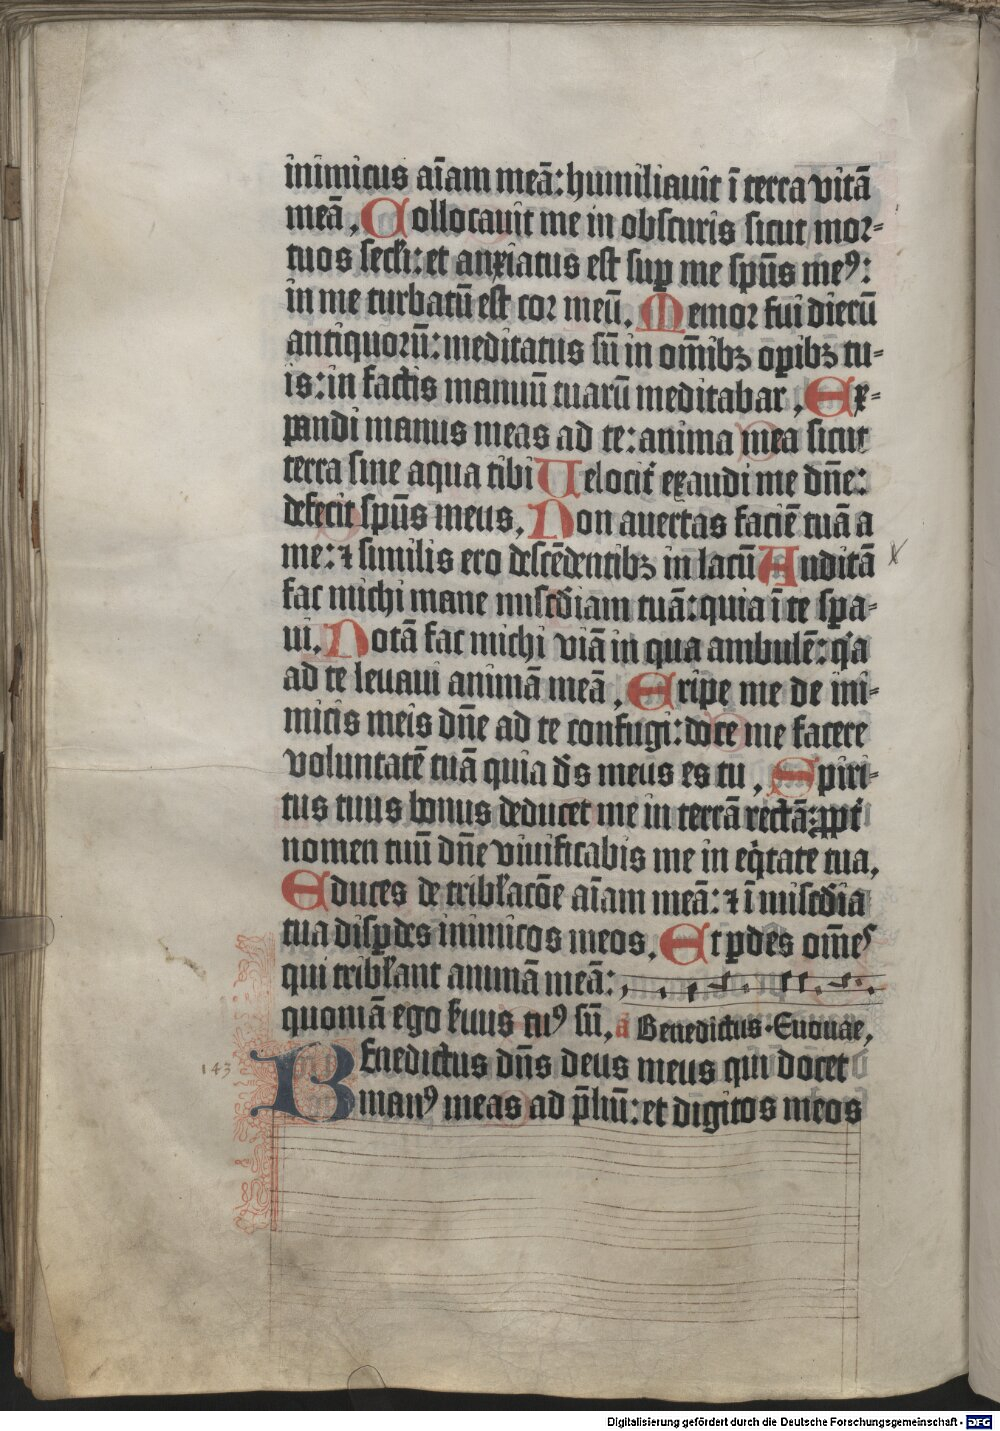 inimicus aīam meā: humiliauit ī terra vitā
meā, Collocauit me in obscuris sicut mor-
tuos secli: et anxiatus est suꝑ me spūs meꝰ:
in me turbatū est cor meū. Memor fui dierū
antiquorū: meditatus sū in om̄ibꝫ oꝑibꝫ tu-
is: in factis manuū tuarū meditabar, Ex-
pandi manus meas ad te: anima mea sicut
terra sine aqua tibi Uelocit᷑ exaudi me dn̄e:
defecit spūs meus, Non auertas faciē tuā a
me: ⁊ similis ero descēdentibꝫ in lacū Auditā
fac michi mane mis̄cdiam tuā: quia ī te sꝑa-
ui. Notā fac michi viā in qua ambulē: qͥa
ad te leuaui animā meā, Eripe me de ini-
micis meis dn̄e ad te confugi: doce me facere
voluntatē tuā quia ds̄ meus es tu, Spiri-
tus tuus bonus deducet me in terrā rectā: ꝓpt᷑
nomen tuū dn̄e viuificabis me in eqͥtate tua,
Educes de tribl̄acōe aīam meā: ⁊ ī mis̄cdia
tua disꝑdes inimicos meos. Et ꝑdes om̄es
qui tribl̄ant animā meā:
quoniā ego s̄uus tuꝰ sū, a̅ Benedictus. Euouae,
143 BEnedictus dn̄s deus meus qui docet
manꝰ meas ad p̄liū: et digitos meos
Digitalisierung gefördert durch die Deutsche Forschungsgemeinschaft - DFG